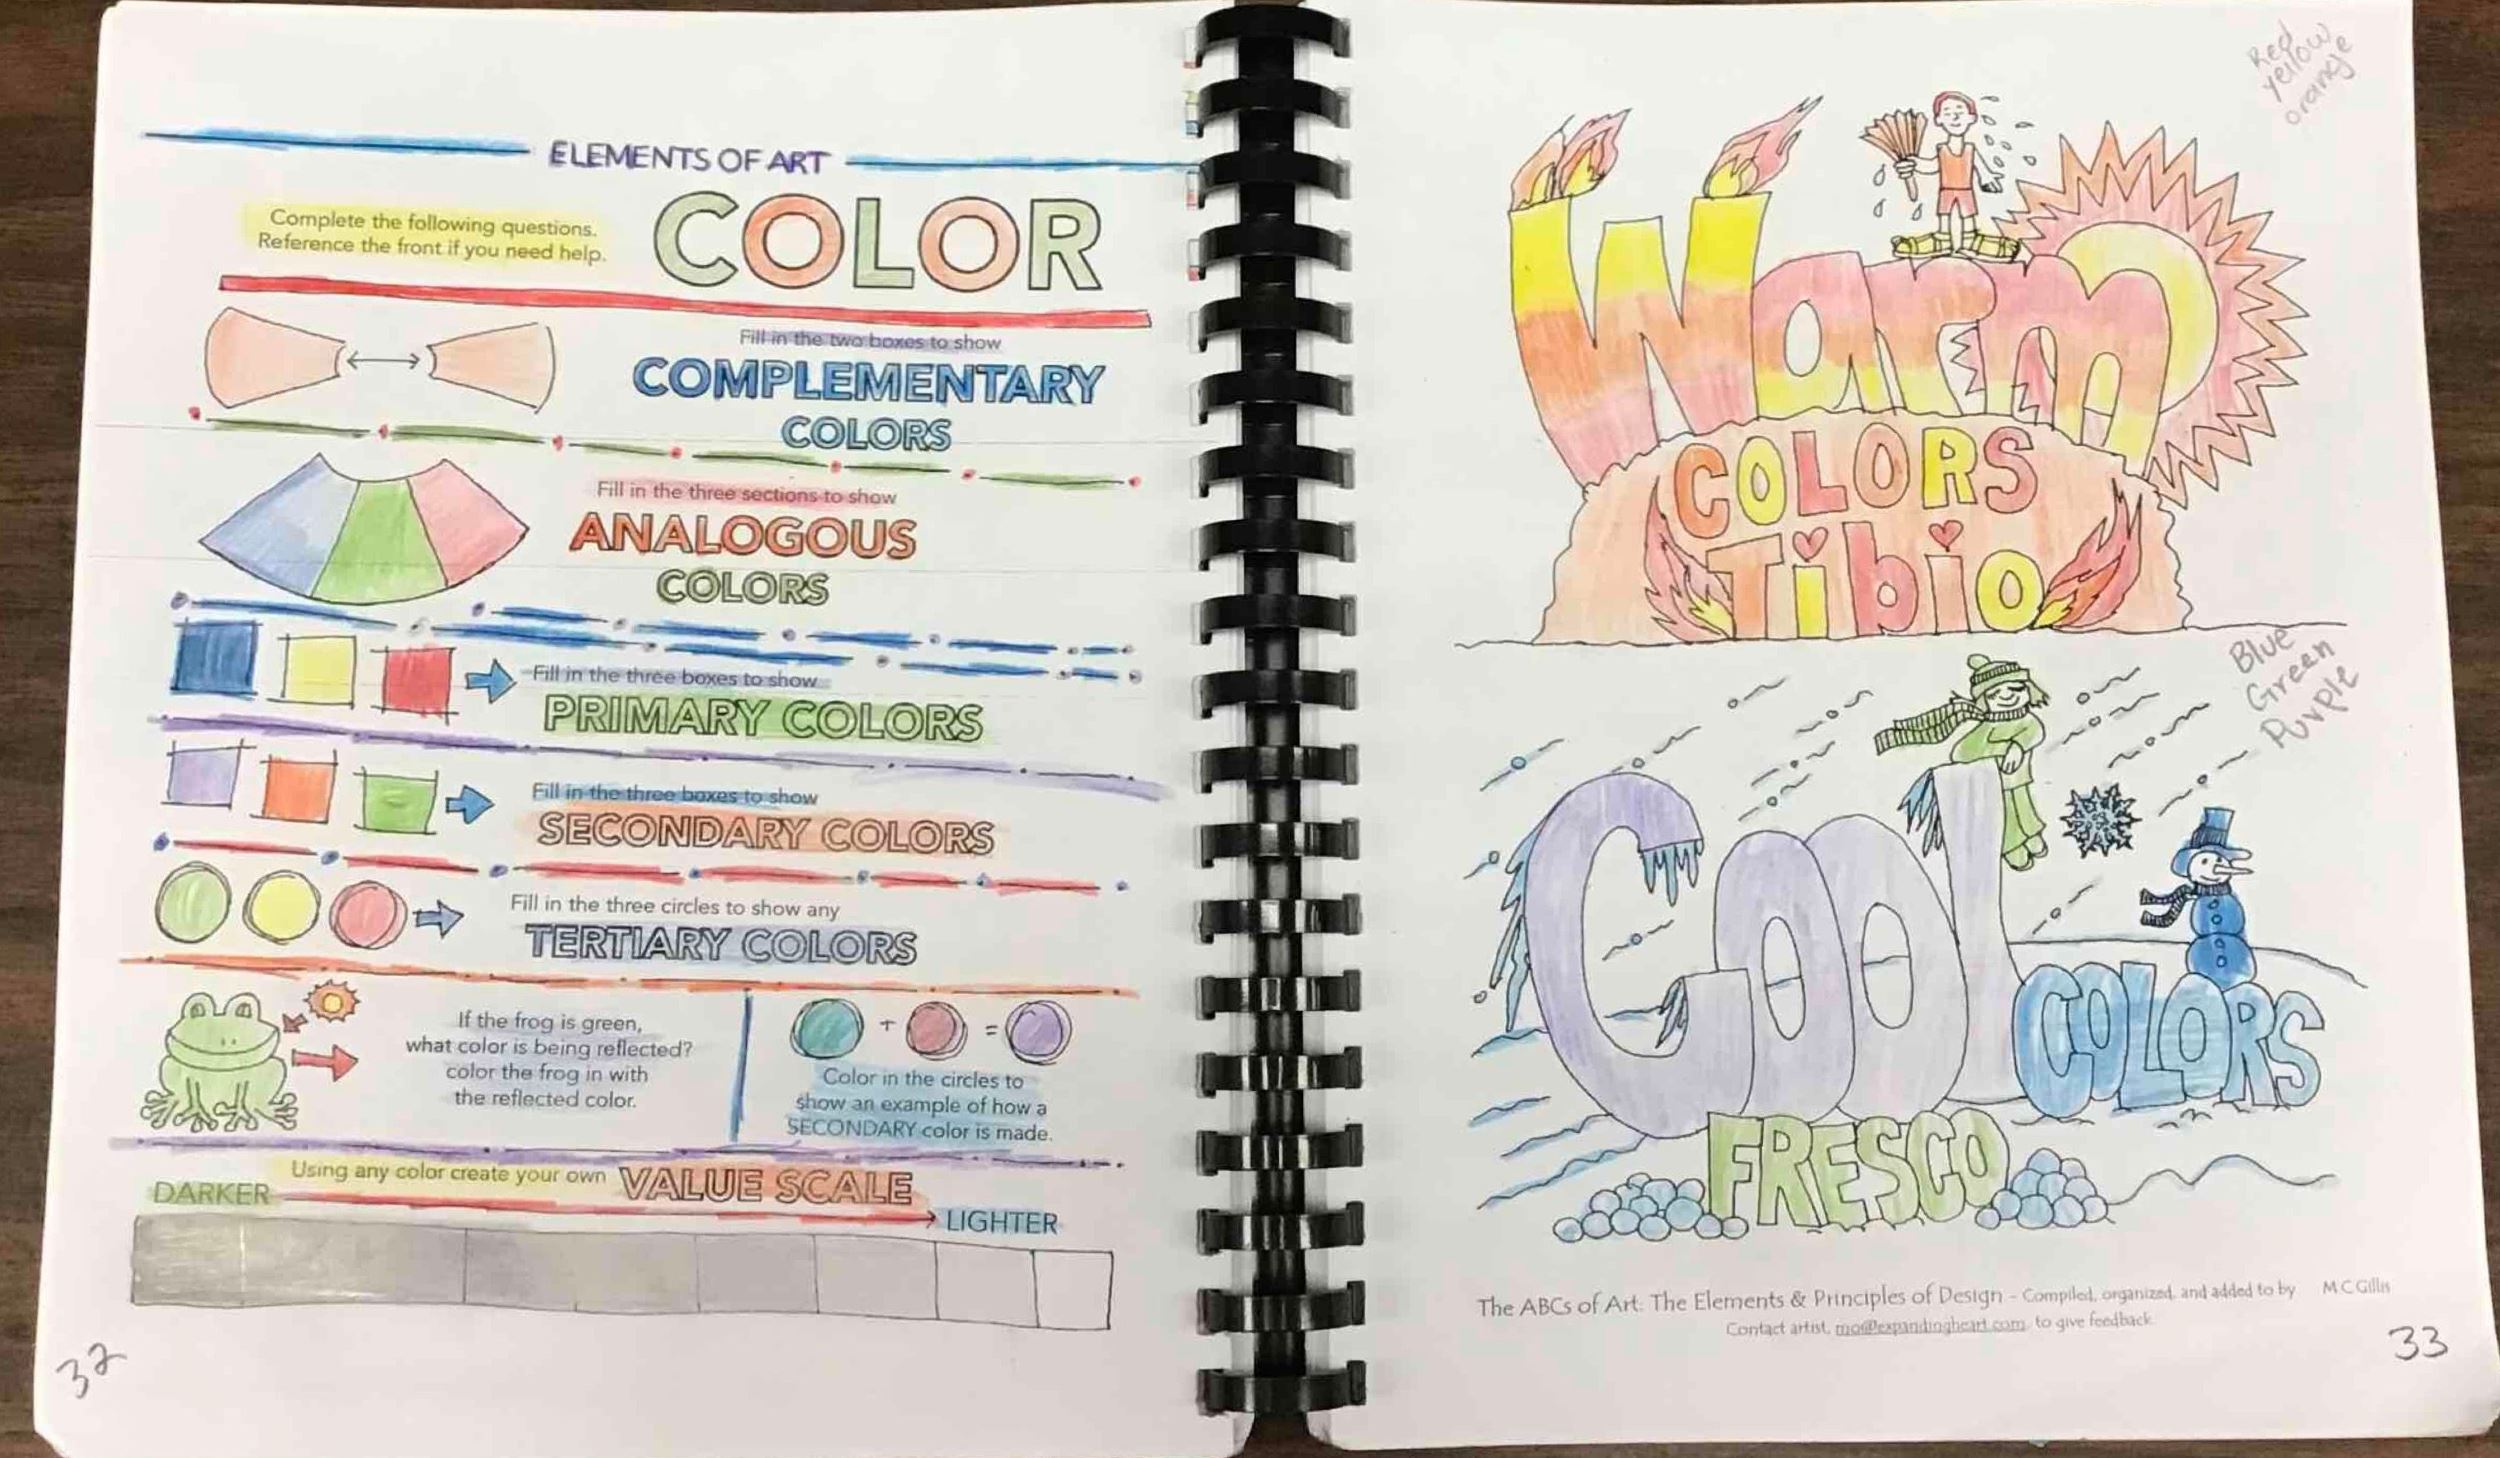 ELEMENTS OF ART
Complete the following questions.
Reference the front if you need help.
COLOR
Fill in the two boxes to show
COMPLEMENTARY
COLORS
Fill in the three sections to show
ANALOGOUS
COLORS
Fill in the three boxes to show
PRIMARY COLORS
Fill in the three boxes to show
SECONDARY COLORS
Fill in the three circles to show any
TERTIARY COLORS
If the frog is green,
what color is being reflected?
color the frog in with
the reflected color.
+ =
Color in the circles to
show an example of how a
SECONDARY color is made.
Using any color create your own VALUE SCALE
DARKER
LIGHTER
32
Red
yellow
orange
Warm
COLORS
Tibio
Blue
Green
Purple
Cool
COLORS
FRESCO
The ABCs of Art: The Elements & Principles of Design - Compiled, organized, and added to by M C Gillis
Contact artist, mo@expandingheart.com, to give feedback.
33